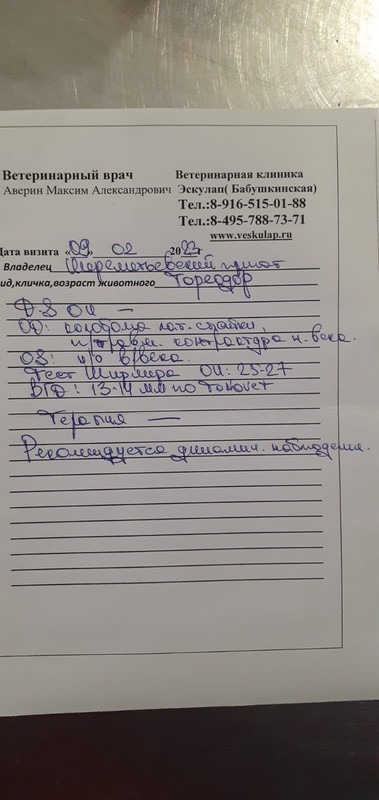 Ветеринарный врач
Ветеринарная клиника
Аверин Максим Александрович
Эскулап( Бабушкинская)
Тел.:8-916-515-01-88
Тел.:8-495-788-73-71
www.veskulap.ru
Дата визита «09» 02 2022г
Владелец Шереметьевский приют
ид,кличка,возраст животного Тореодор
D-S OU —
OD: колобома лат. спайки,
п/травм. контрактура н. века.
OS: н/о в/века.
Тест Ширмера OU: 25-27
ВГД: 13-14 мм по Tonovet
Терапия —
Рекомендуется динамич. наблюдение.